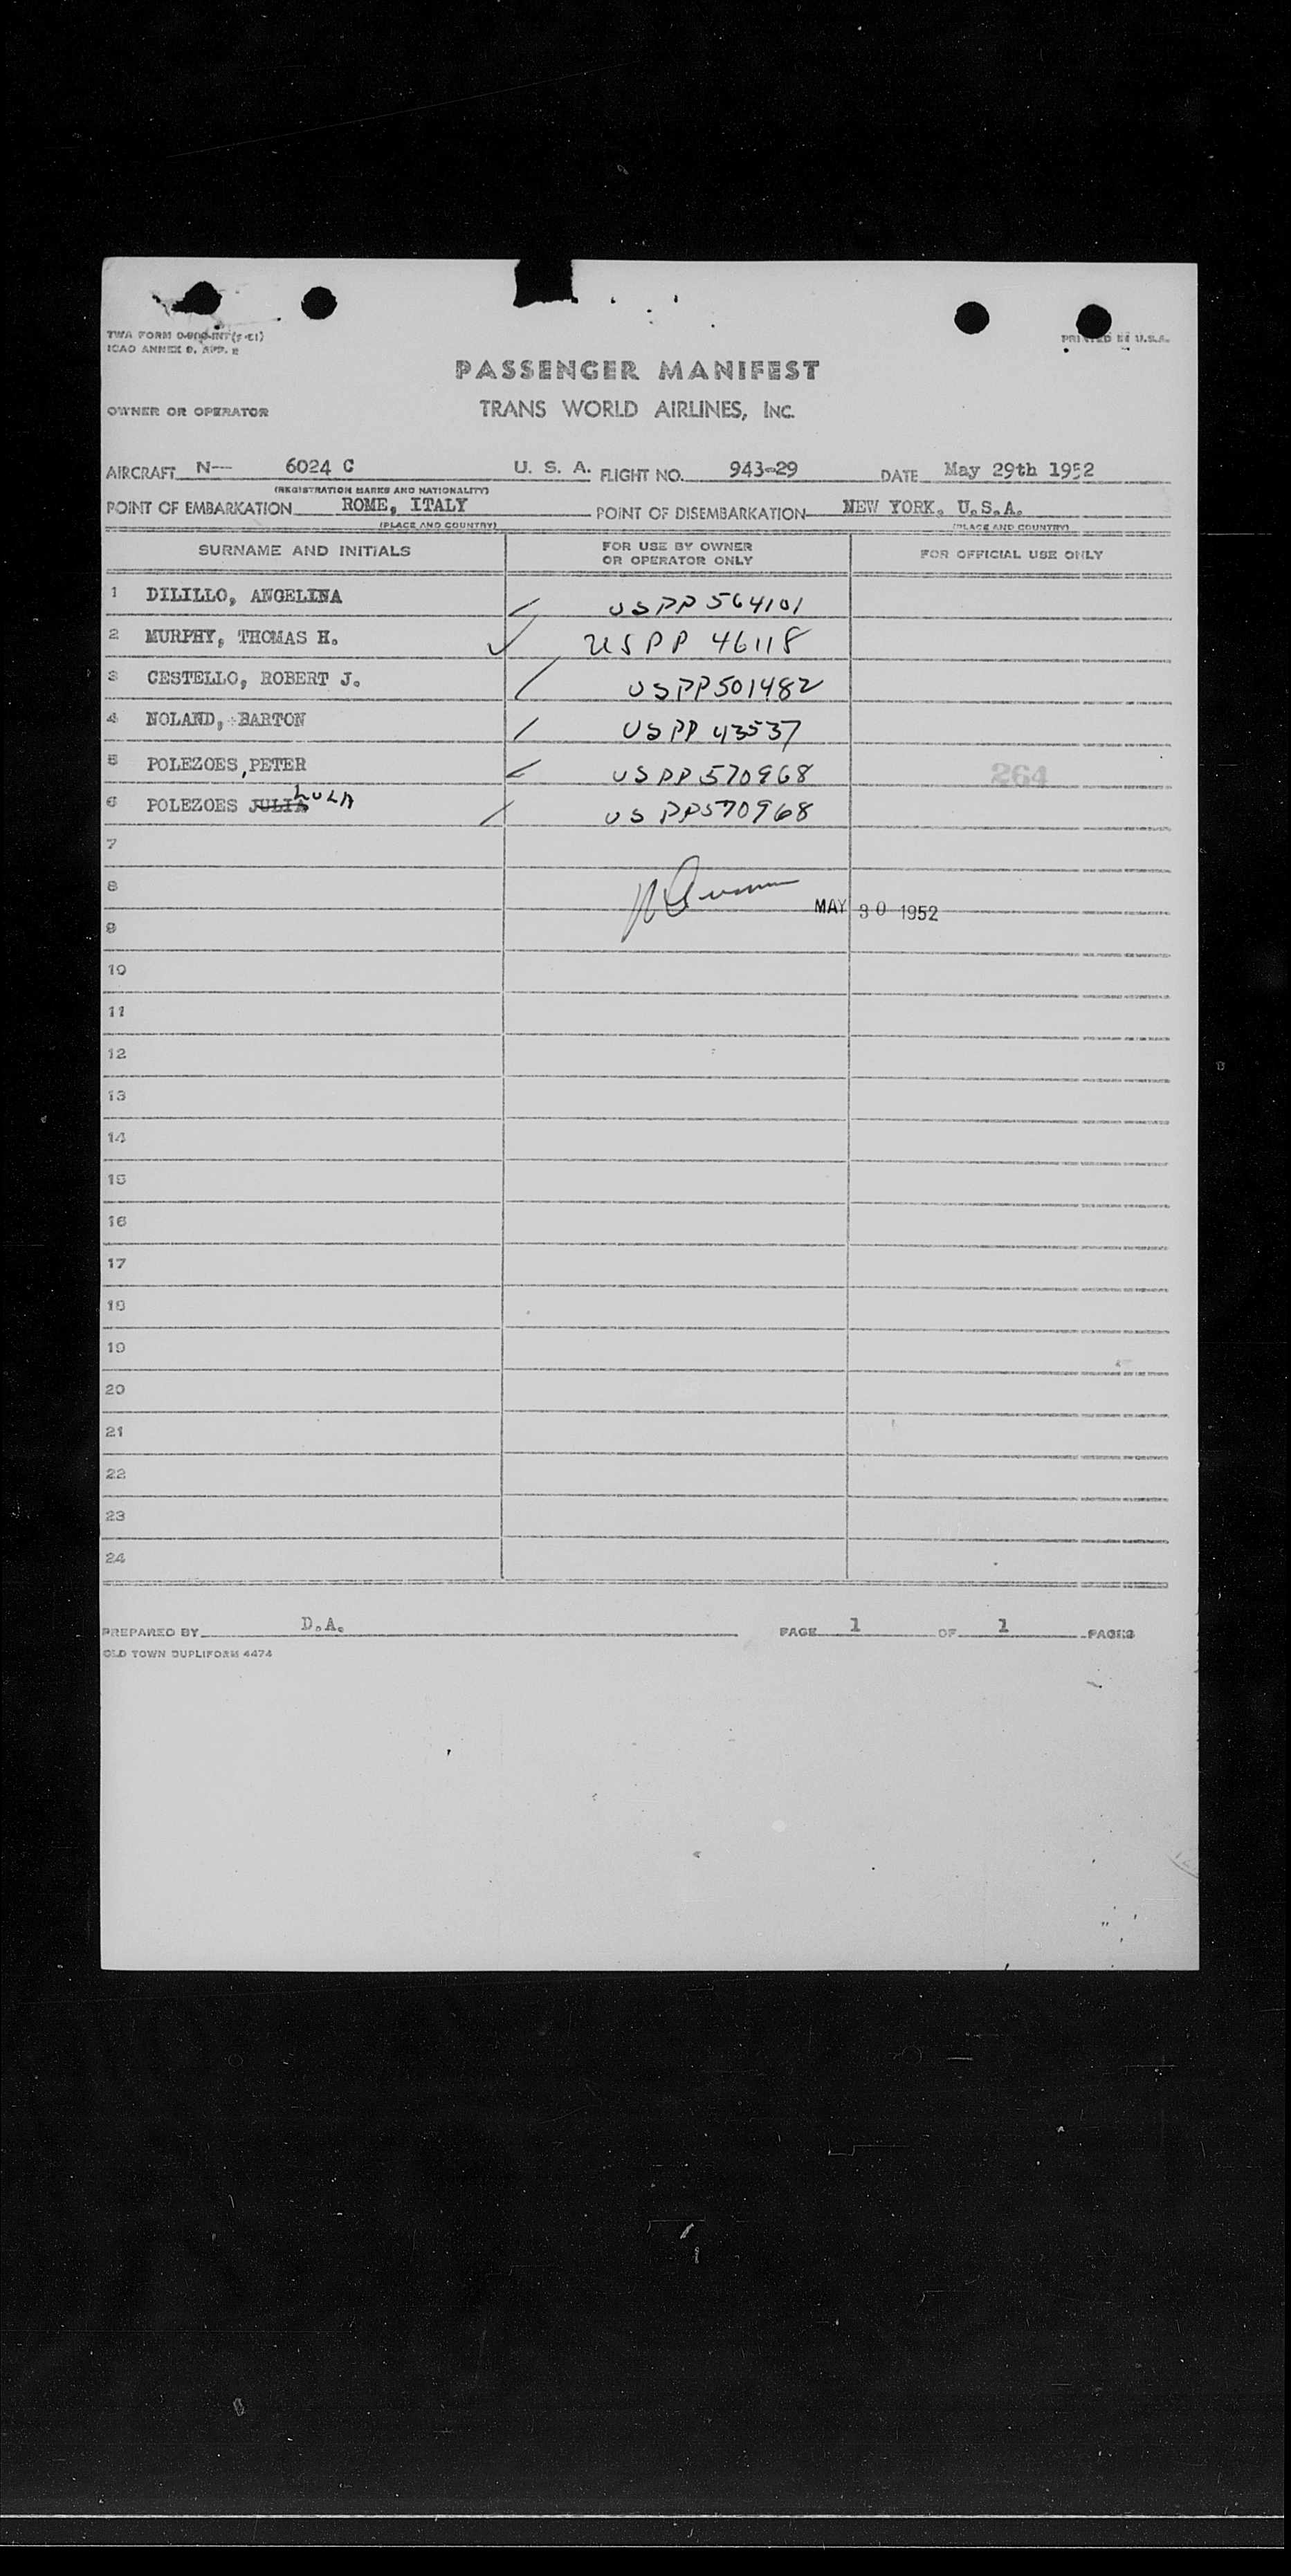 TWA FORM 0-900-INT (5-51)
ICAO ANNEX 9, APP. E
PRINTED IN U.S.A.
PASSENGER MANIFEST
OWNER OR OPERATOR TRANS WORLD AIRLINES, INC.
AIRCRAFT N-- 6024 C U. S. A. FLIGHT NO. 943-29 DATE May 29th 1952
(REGISTRATION MARKS AND NATIONALITY)
POINT OF EMBARKATION ROME, ITALY POINT OF DISEMBARKATION NEW YORK. U.S.A.
(PLACE AND COUNTRY) (PLACE AND COUNTRY)
SURNAME AND INITIALS FOR USE BY OWNER OR OPERATOR ONLY FOR OFFICIAL USE ONLY
1 DILILLO, ANGELINA USPP 564101
2 MURPHY, THOMAS H. USPP 46118
3 CESTELLO, ROBERT J. USPP 501482
4 NOLAND, BARTON USPP 43537
5 POLEZOES, PETER USPP 570968 264
6 POLEZOES JULIA LULA US PP570968
7
8
MAY 30 1952
9
10
11
12
13
14
15
16
17
18
19
20
21
22
23
24
PREPARED BY D.A. PAGE 1 OF 1 PAGES
OLD TOWN DUPLIFORM 4474